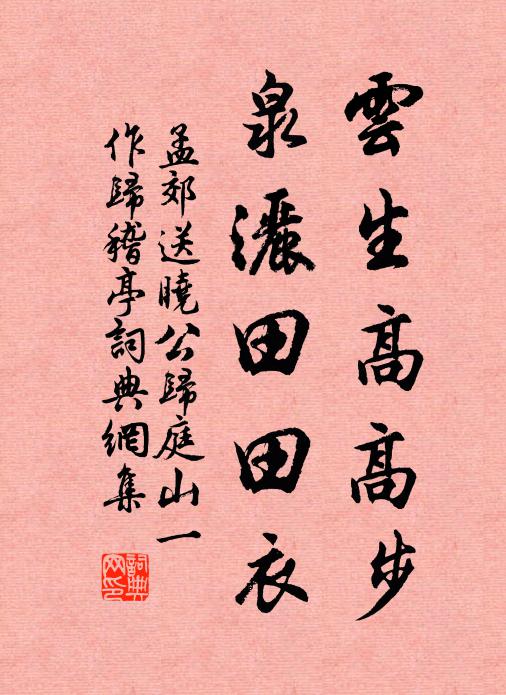 雲生高高步
泉灑田田衣
孟郊送曉公歸庭山一
作歸稽亭詞典網集
詞典
网印